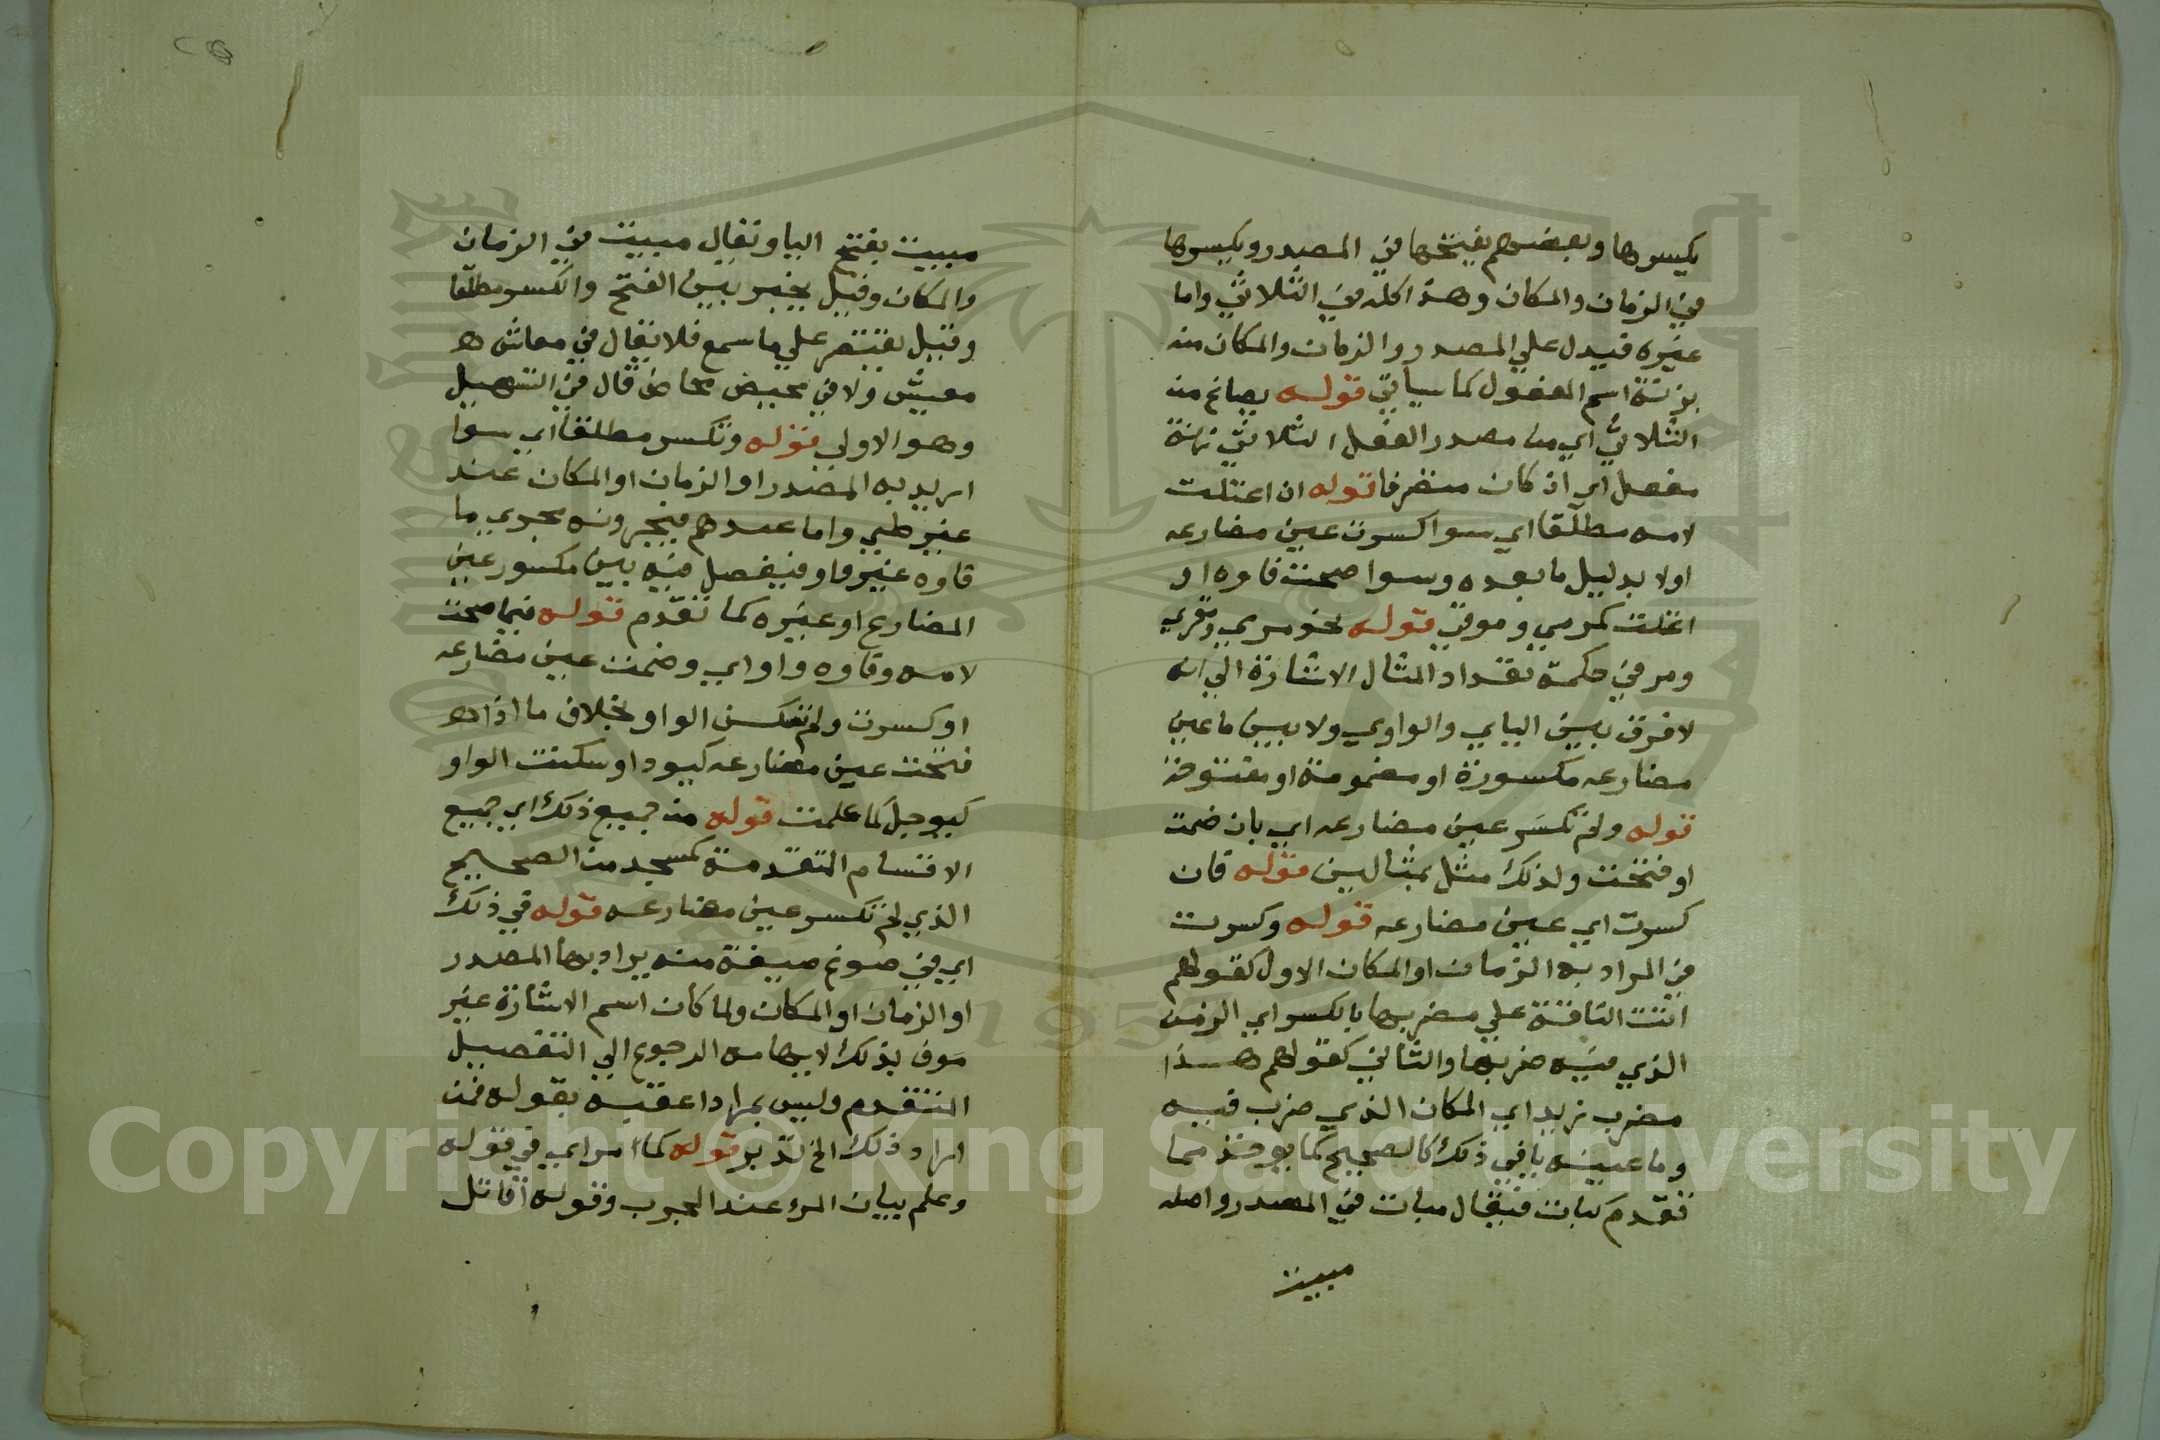 يكسرها وبعضهم يفتحها في المصدر ويكسرها
في الزمان والمكان وهذا كله في الثلاثي واما
غيره فيدل علي المصدر والزمان والمكان منه
بزنة اسم المفعول كما سياتي قوله يصاغ من
الثلاثي اي من مصدر الفعل الثلاثي زنة
مفعل اي ان كان متصرفا قوله ان اعتلت
لامه مطلقا اي سوا كسرت عين مضارعه
اولا بدليل ما بعده وسوا صحت فاوه او
اعتلت كمرمي وموقي قوله نحو مرمي ومغزي
ومر في حكمة تعداد المثال الاشارة الي انه
لا فرق بين اليايي والواوي ولا بين ما عين
مضارعه مكسورة او مضمومة او مفتوحة
قوله ولم تكسر عين مضارعه اي بان ضمت
او فتحت ولذلك مثل بمثالين قوله فان
كسرت اي عين مضارعه قوله وكسرت
في المراد به الزمان او المكان الاول كقولهم
اتت الناقة علي مضربها بالكسر اي الزمن
الذي فيه ضربها والثاني كقولهم هذا
مضرب زيد اي المكان الذي ضرب فيه
وما عينه يا في ذلك كالصحيح كما يوخذ مما
تقدم كبات فيقال مبات في المصدر واصله
مبيت
مبيت بفتح اليا وتقال مبيت في الزمان
والمكان وقيل يخير بين الفتح والكسر مطلقا
وقيل يقتصر علي ما سمع فلا يقال في معاش
معيش ولا في محيض محاض قال في التسهيل
وهو الاولي قوله وتكسر مطلقا اي سوا
اريد به المصدر او الزمان او المكان عند
غير طيي واما عندهم فيجرونه مجري ما
فاوه غير واو فيفصل فيه بين مكسور عين
المضارع او غيره كما تقدم قوله فيما صحت
لامه وفاوه واو اي وضمت عين مضارعه
او كسرت ولم تكن الواو بخلاف ما اذا
فتحت عين مضارعه كيود او سكنت الواو
كيوجل كما علمت قوله من جميع ذلك اي جميع
الاقسام المتقدمة كمسجد من الصحيح
الذي لم تكسر عين مضارعه قوله في ذلك
اي في صوغ صيغة منه يراد بها المصدر
او الزمان او المكان ولما كان اسم الاشارة غير
موف بذلك لايهامه الرجوع الي التفصيل
المتقدم وليس بمراد اعقبه بقوله فمن
اراد ذلك الخ تدبر قوله كما مر اي في قوله
وعلم بيان المرء عند المجرب وقوله اقاتل